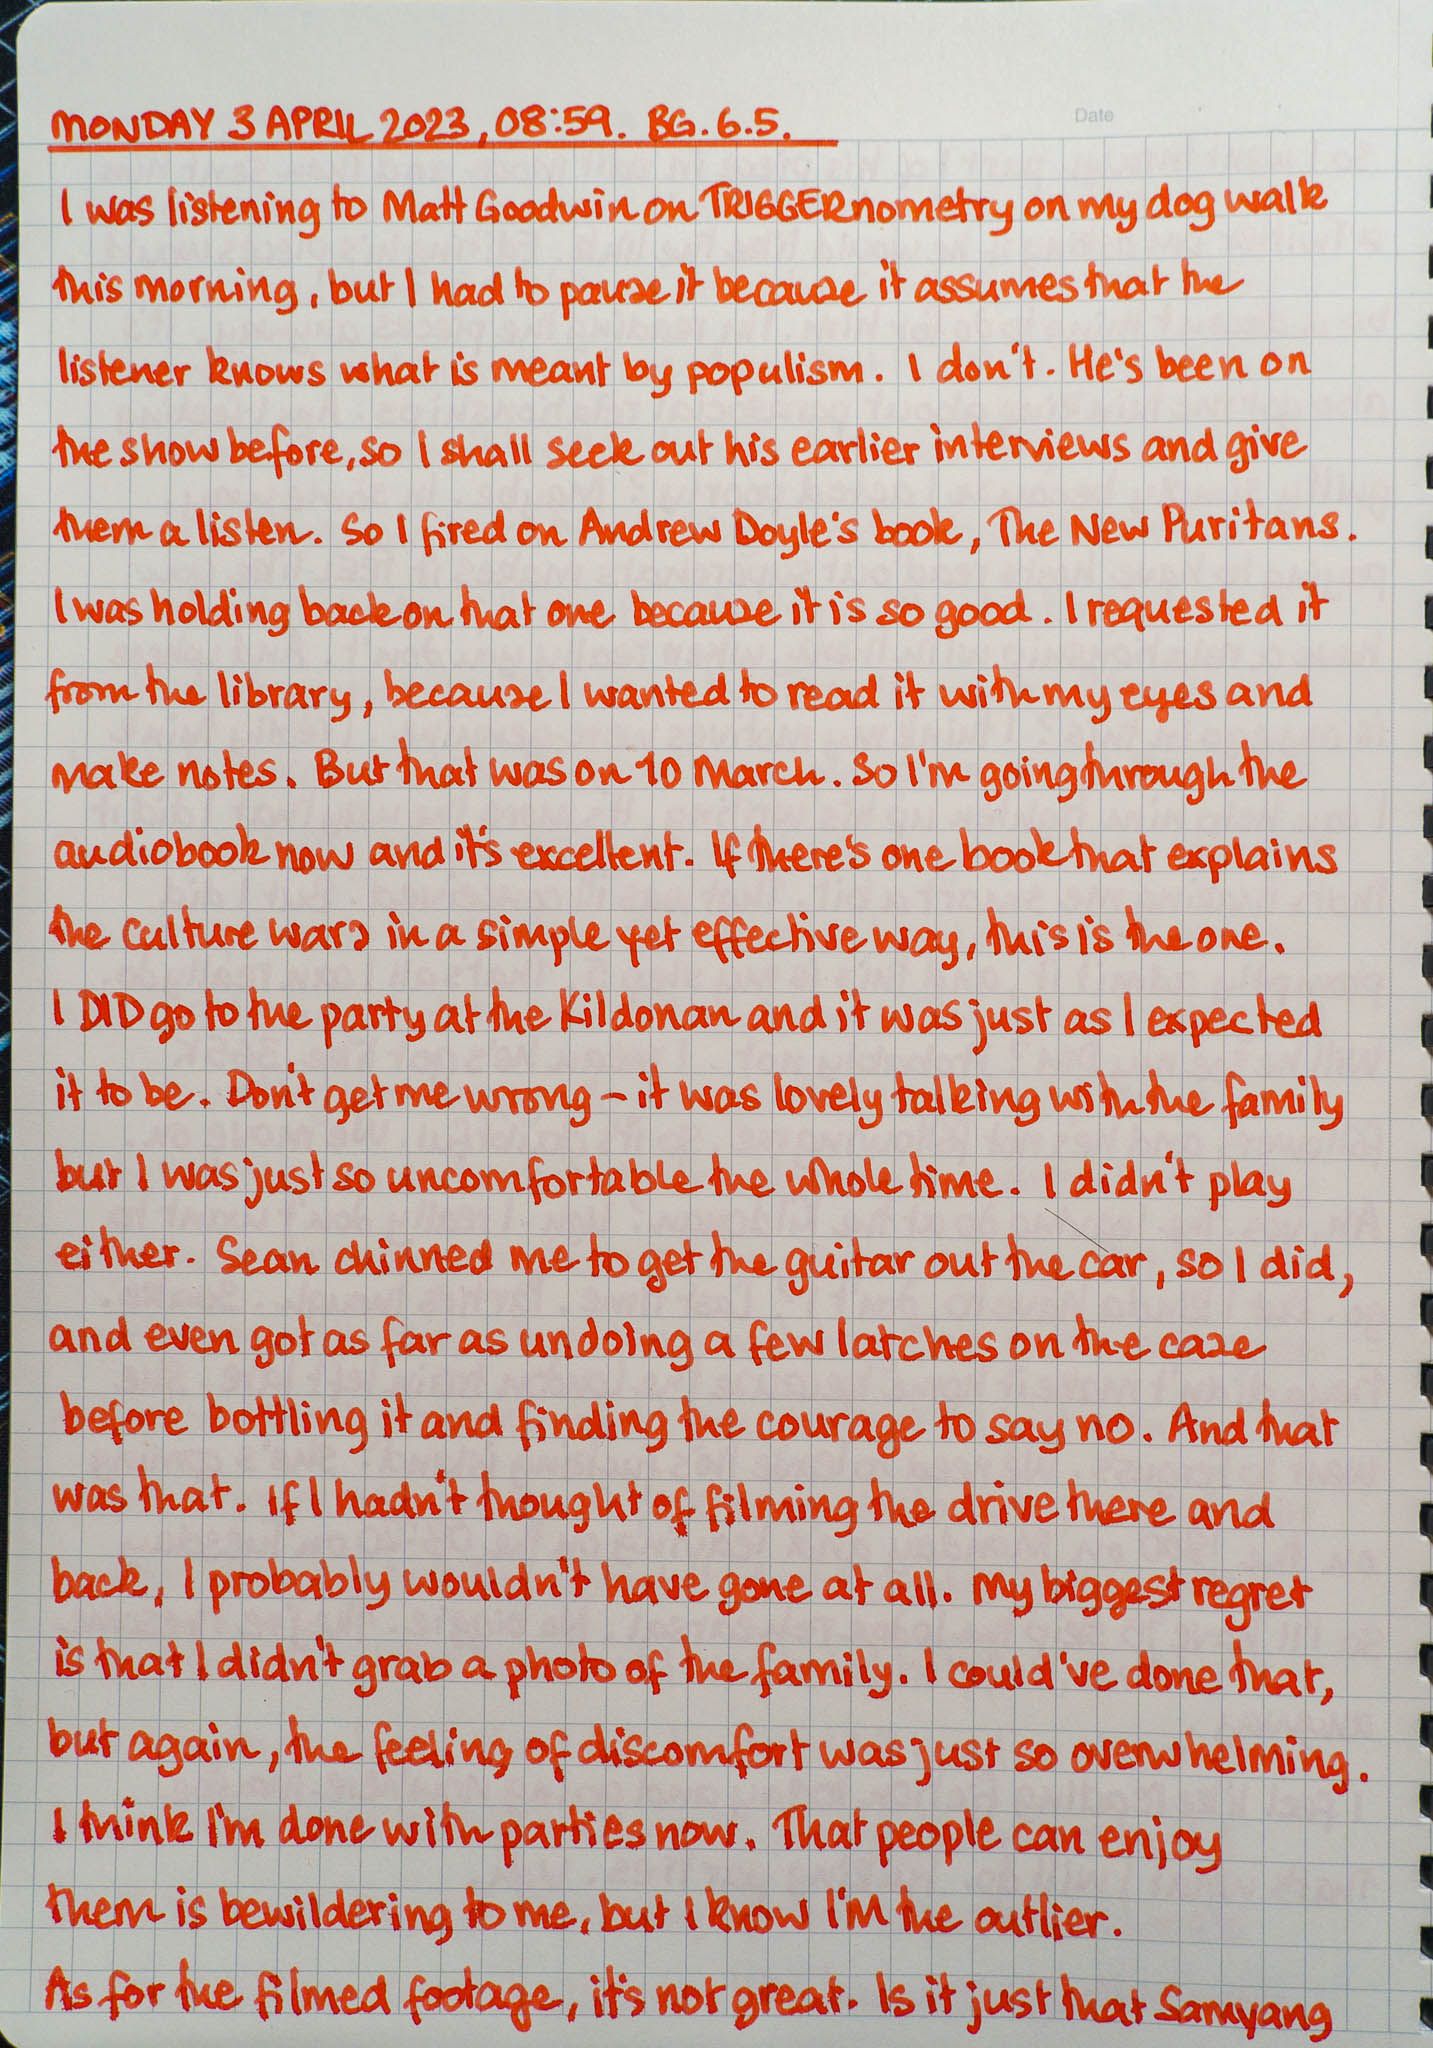 Date
MONDAY 3 APRIL 2023, 08:59. BG. 6.5.
I was listening to Matt Goodwin on TRIGGERnometry on my dog walk
this morning, but I had to pause it because it assumes that the
listener knows what is meant by populism. I don't. He's been on
the show before, so I shall seek out his earlier interviews and give
them a listen. So I fired on Andrew Doyle's book, The New Puritans.
I was holding back on that one because it is so good. I requested it
from the library, because I wanted to read it with my eyes and
make notes. But that was on 10 March. So I'm going through the
audiobook now and it's excellent. If there's one book that explains
the culture wars in a simple yet effective way, this is the one.
I DID go to the party at the Kildonan and it was just as I expected
it to be. Don't get me wrong – it was lovely talking with the family
but I was just so uncomfortable the whole time. I didn't play
either. Sean chinned me to get the guitar out the car, so I did,
and even got as far as undoing a few latches on the case
before bottling it and finding the courage to say no. And that
was that. If I hadn't thought of filming the drive there and
back, I probably wouldn't have gone at all. My biggest regret
is that I didn't grab a photo of the family. I could've done that,
but again, the feeling of discomfort was just so overwhelming.
I think I'm done with parties now. That people can enjoy
them is bewildering to me, but I know I'm the outlier.
As for the filmed footage, it's not great. Is it just that Samyang